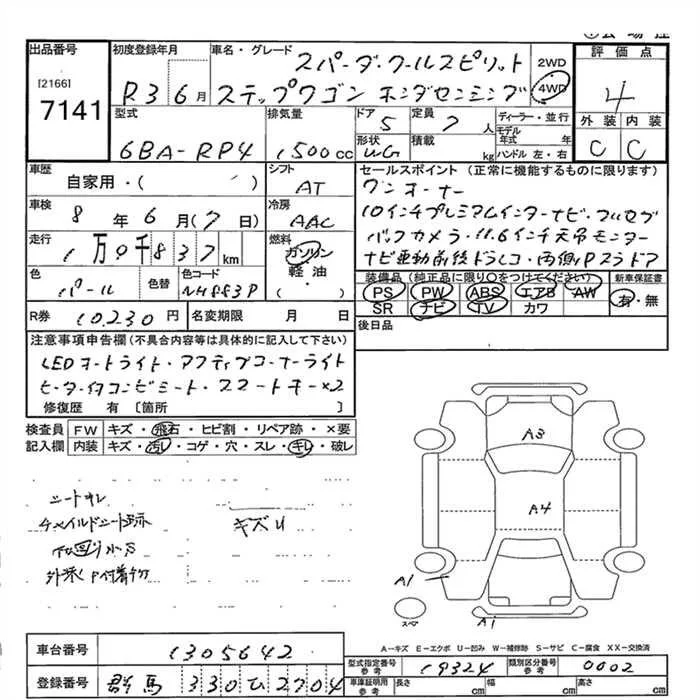 出品番号
[2166]
7141
初度登録年月
R3 6月
車名・グレード
スパーダ・クールスピリット
ステップワゴン ホンダセンシング
2WD
4WD
評価点
4
型式
6BA-RP4
排気量
1500cc
ドア
5
定員
7人
ディーラー・並行
モデル年式 年
形状
WG
積載
kg
ハンドル 左・右
外装 内装
C C
車歴
自家用・( )
シフト
AT
セールスポイント(正常に機能するものに限ります)
ワンオーナー
10インチプレミアムインターナビ・フルセグ
バックカメラ・11.6インチ天吊モニター
ナビ連動前後ドラレコ・両側Pスラドア
車検
8年6月(7日)
冷房
AAC
走行
1万9千837km
燃料
ガソリン
軽油・
( )
色
パール
色替
色コード
NH883P
装備品(純正品に限り○をつけてください)
新車保証書
PS PW ABS エアB AW
有・無
SR ナビ TV カワ
R券 10,230円
名変期限 月 日
後日品
注意事項申告欄(不具合内容等は具体的に記入して下さい)
LEDオートライト・アクティブコーナーライト
ヒーター付コンビシート・スマートキー×2
修復歴 有 [箇所 ]
検査員記入欄
FW キズ・飛石・ヒビ割・リペア跡・×要
内装 キズ・汚レ・コゲ・穴・スレ・キレ・破レ
シートキレ
チャイルドシート跡
下回り小サ
キズU
A3
A4
A1
A1
スペ
A-キズ E-エクボ U-凹み W-補修跡 S-サビ C-腐食 XX-交換済
車台番号 1305642
登録番号 群馬 330 ひ 2704
型式指定番号 参考 19324
類別区分番号 参考 0002
車庫証明用 参考 長さ cm 幅 cm 高さ cm